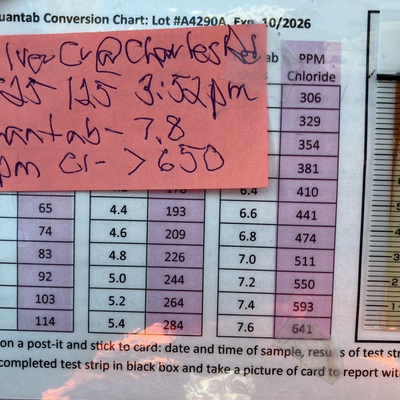 uantab Conversion Chart: Lot #A4290A, Exp. 10/2026
lver Cr @ Charles Rd
525 125 3:52pm
uantab - 7.8
pm Cl- > 650
ab PPM
Chloride
306
329
354
381
176 6.4 410
65 4.4 193 6.6 441
74 4.6 209 6.8 474
83 4.8 226 7.0 511
92 5.0 244 7.2 550
103 5.2 264 7.4 593
114 5.4 284 7.6 641
on a post-it and stick to card: date and time of sample, resu s of test str
completed test strip in black box and take a picture of card to report wit